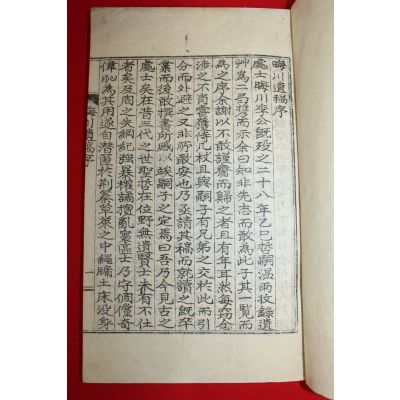 晦川遺稿序
處士晦川李公旣歿之二十八年乙巳哲嗣溫雨收錄遺
艸爲二局而示余曰知非先志而敢爲此子其一覽而
爲之序余謝以不敢謹齋而歸之者有年耳然每窃念
涉之不肖嘗獲侍几杖且與嗣子有兄弟之交於此而引
分而外避之又非所敢安也乃亟請其稿而就讀之旣卒
業而後敢撰其所感以俟嗣子之定焉曰吾乃今見古之
處士矣在昔三代之世聖哲在位野無遺賢士未有不仕
者矣及周之失綱紀強暴權譎擅亂寰區士乃守個儻奇
偉恥爲其用遂自潛蓋於荆蓁草萊之中繩牖土床沒身
晦川遺稿序
一